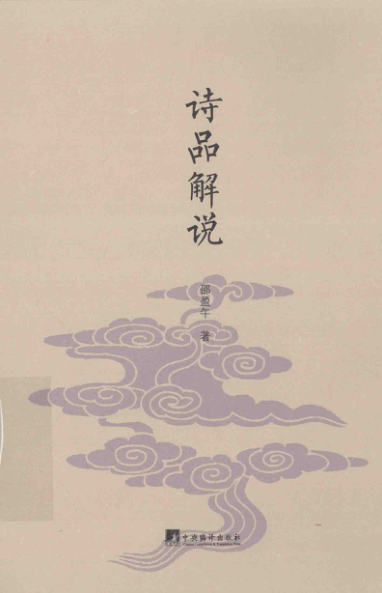 诗品解说
邵盈午 著
中央编译出版社